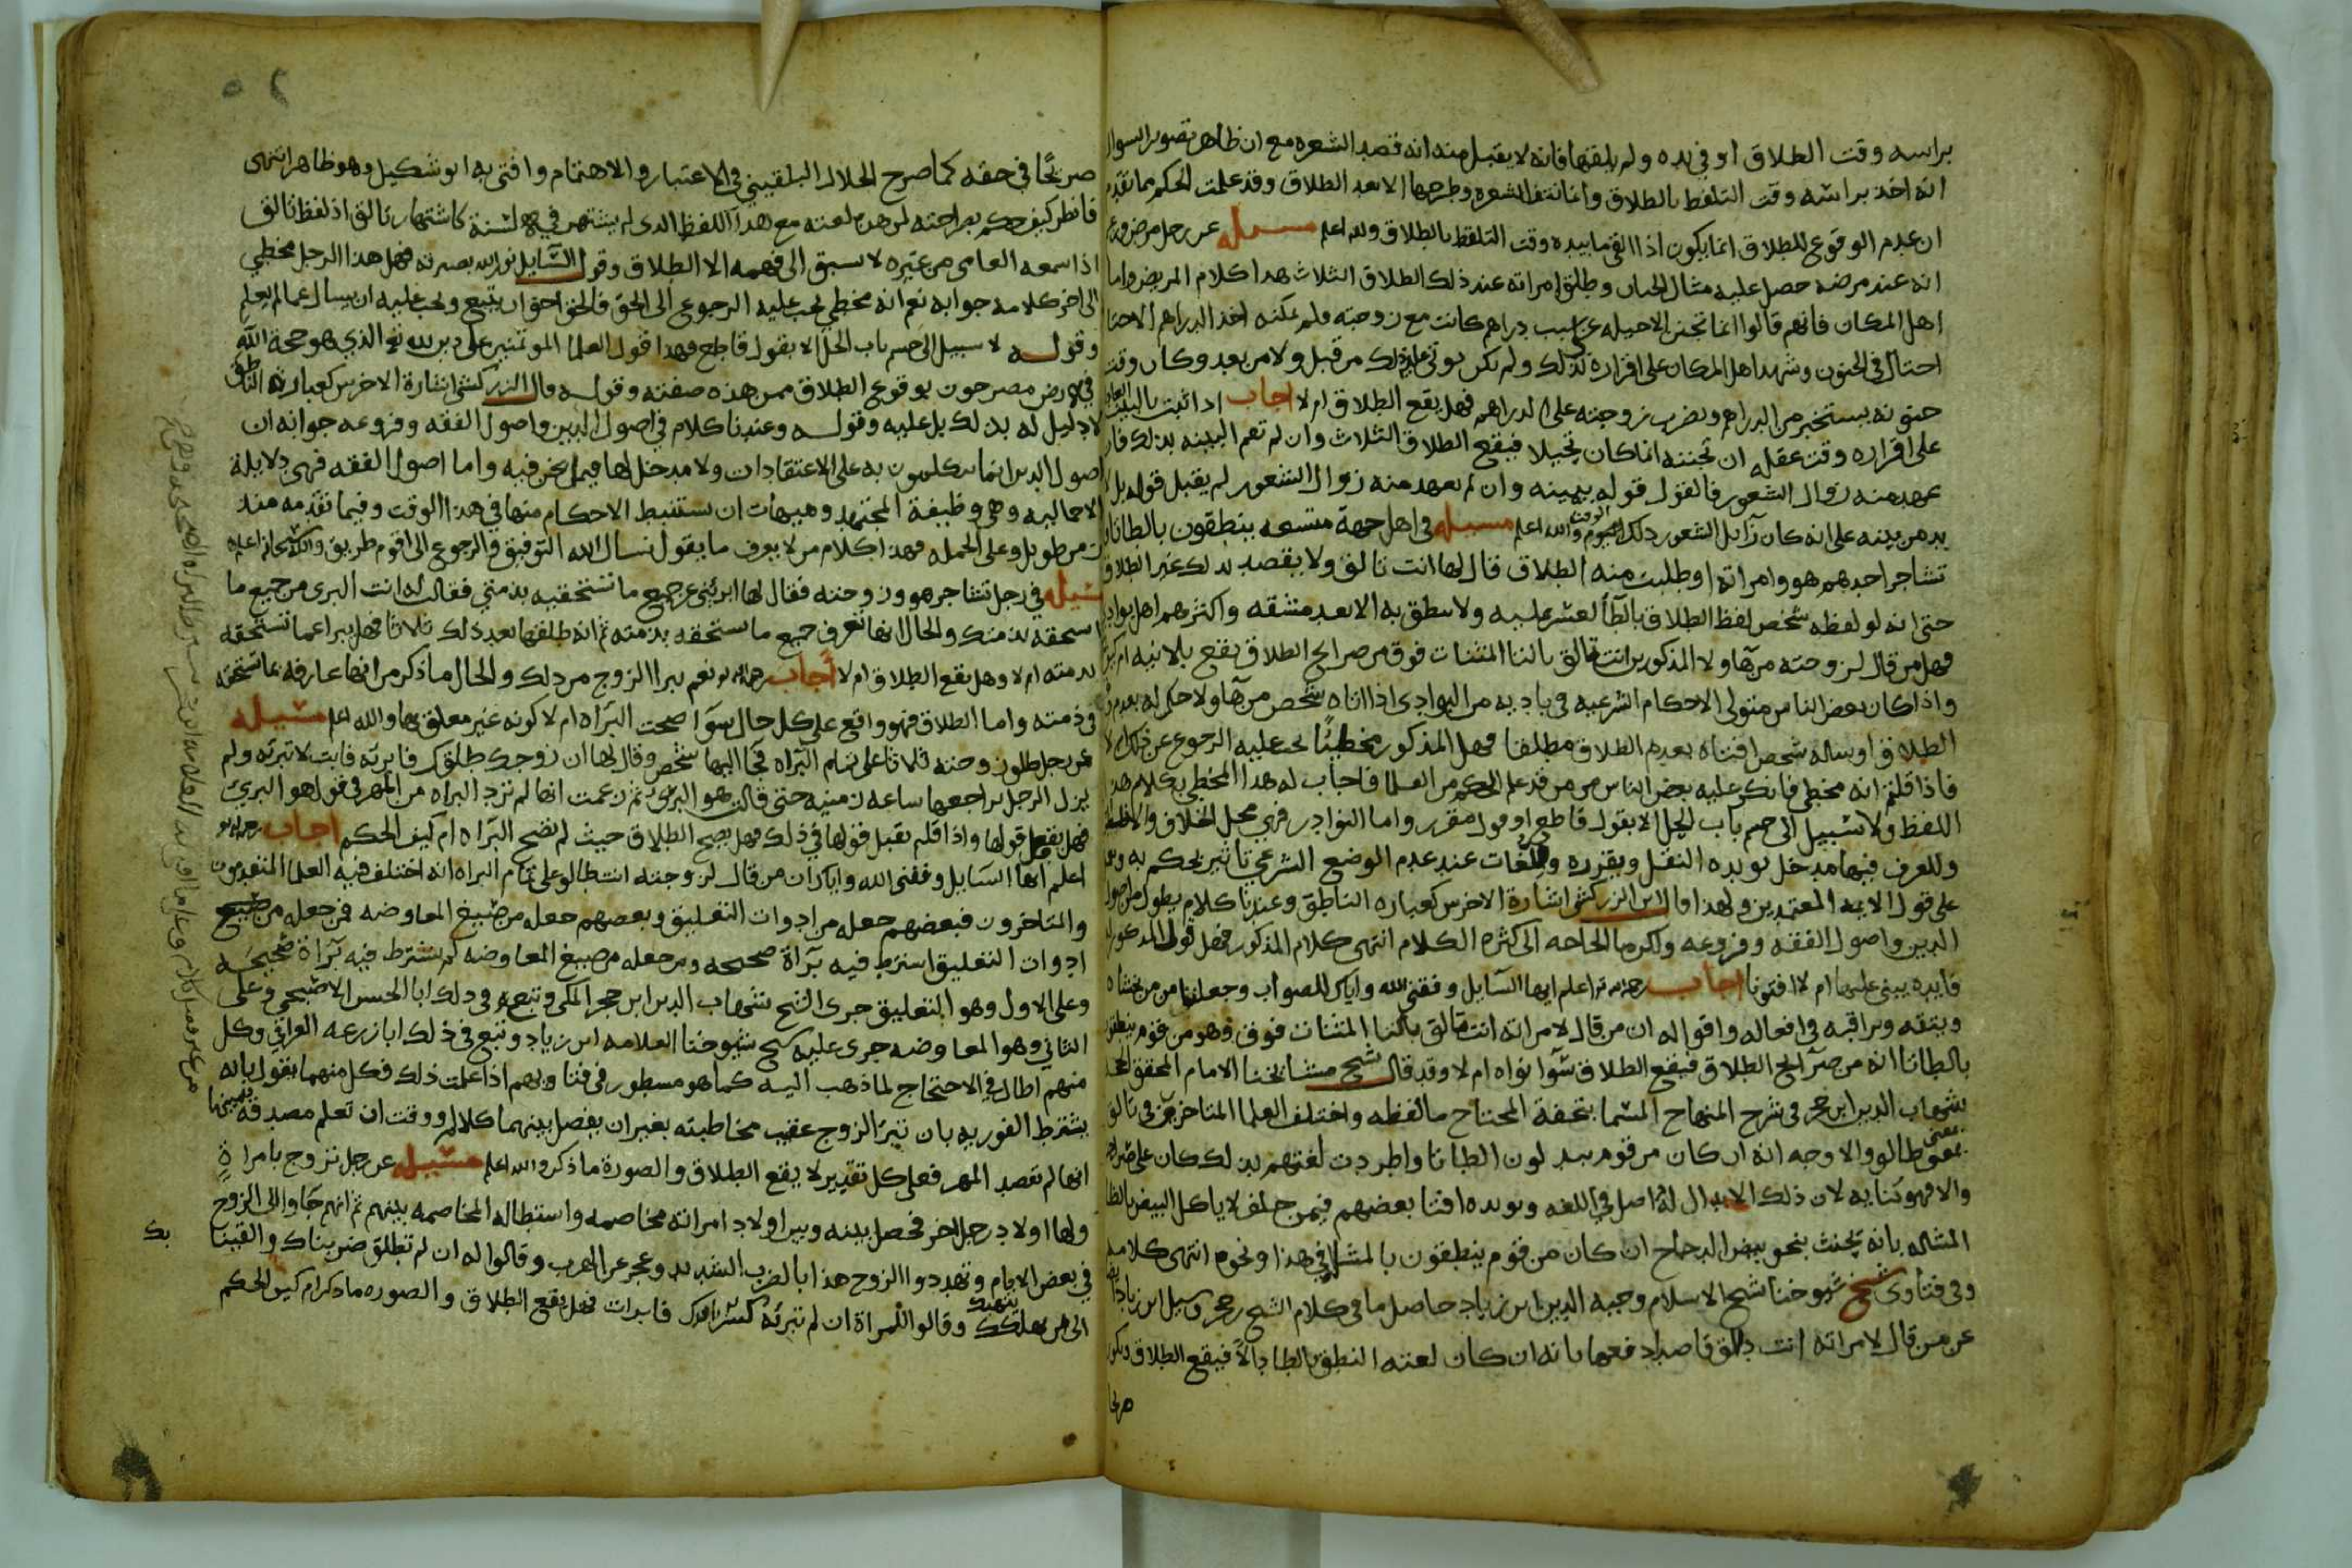 براسه وقت الطلاق او في يده ولم يلقها فانه لا يقبل منه انه قصد الشعره مع ان ظاهر تصوير السوال
انه اخذ براسه وقت التلفظ بالطلاق وانما نتف الشعره وطرحها الا بعد الطلاق وقد علمت الحكم مما تقدم
ان عدم الوقوع للطلاق انما يكون اذا القى ما بيده وقت التلفظ بالطلاق والله اعلم مسيله عن رجل مرض
انه عند مرضه حصل عليه مثال الجنان وطلق امراته عند ذلك الطلاق الثلاث هذا كلام المريض واما
اهل المكان فانهم قالوا انما تجنن الاحيله عن سبب دراهم كانت مع زوجته ولم يمكنه اخذ الدراهم الا حتا
احتال في الجنون وشهد اهل المكان على اقراره لذلك ولم يكن يوتى عليه ذلك من قبل ولا من بعد وكان وقت
جنونه يستخبر من الدراهم ويضرب زوجته على الدراهم فهل يقع الطلاق ام لا اجاب اذا اثبت بالبينه
على اقراره وقت عقله ان تجننه انما كان تحيلا فيقع الطلاق الثلاث وان لم تقم البينه بذلك فان
عهد منه زوال الشعور فالقول قوله بيمينه وان لم يعهد منه زوال الشعور لم يقبل قوله بل لا
بد من بينه على انه كان زايل الشعور ذلك الوقت والله اعلم مسيله في اهل جهة متسعه ينطقون بالطا تا
تشاجر احدهم هو وامراته او طلبت منه الطلاق قال لها انت تالق ولا يقصد بذلك غير الطلاق
حتى انه لو لفظه شخص لفظ الطلاق بالطا لعسر عليه ولا ينطق به الا بعد مشقه واكثرهم اهل بوادي
فهل من قال لزوجته من هاولا المذكورين انت تالق بالتا المثنات فوق من صرايح الطلاق يقع بلا نيه ام
واذا كان بعض الناس متولى الاحكام الشرعيه في باديه من البوادي اذا اتاه شخص من هاولا حكم له بعدم
الطلاق او ساله شخص افتاه بعدم الطلاق مطلقا فهل المذكور مخطئا يجب عليه الرجوع عن ذلك ام لا
فاذا قلتم انه مخطي فانكر عليه بعض الناس من العلما فاجاب له هذا المخطي بكلام هذا
اللفظ ولا سبيل الى حسم باب الحل الا بقول قاطع او قول مقرر واما النوادر فهي محل الخلاف والا
وللعرف فيها مدخل يويده النقل ويقرره وللغات عند عدم الوضع الشرعي تاثير يحكم به
على قول الايمه المعتمدين ولهذا قال ابن الزركشي اشارة الاخرس كعباره الناطق وعندنا كلام يطول من اصول
الدين واصول الفقه وفروعه ولكن ما الحاجه الى كثره الكلام انتهى كلام المذكور فهل قول المذكور
فايده يبنى عليها ام لا افتونا اجاب رحمه الله اعلم ايها السايل وفقني الله واياك للصواب وجعلنا ممن يخشاه
ويتقه ويراقبه في افعاله واقواله ان من قال لامراته انت تالق بالتا المثنات فوق وهو من قوم ينطقون
بالطا تا انه من صرايح الطلاق فيقع الطلاق سوا نواه ام لا وقد قال شيخ مشايخنا الامام المحقق
شهاب الدين ابن حجر في شرح المنهاج المسما بتحفة المحتاج ما لفظه واختلف العلما المتاخرين في تالق
بمعنى طالق والاوجه انه ان كان من قوم يبدلون الطا تا واطردت لغتهم بذلك كان على صراحته
والا فهو كنايه لان ذلك الابدال له اصل في اللغه ويويده افتا بعضهم فيمن حلف لا ياكل البيض بالظا
المشاله بانه يحنث بنحو بيض الدجاج ان كان من قوم ينطقون بالمشاله في هذا ونحوه انتهى كلامه
وفي فتاوى شيخ شيوخنا شيخ الاسلام وجيه الدين ابن زياد حاصل ما في كلام الشيخ ابن حجر وسيل ابن زياد
عن من قال لامراته انت دالق قاصدا دفعها بانه ان كان لغته النطق بالطا دالا فيقع الطلاق ويكون
صريحا
صريحا في حقه كما صرح الجلال البلقيني في الاعتبار والاهتمام وافتى به ابو شكيل وهو ظاهر انتهى
فانظر كيف حكم بصراحته لمن هذه لغته مع هذا اللفظ الذي لم يشتهر في الالسنة كاشتهار تالق اذ لفظ تالق
اذا سمعه العامي من غيره لا يسبق الى فهمه الا الطلاق وقول السايل نور الله بصيرته فهل هذا الرجل مخطي
الى اخر كلامه جوابه نعم انه مخطي يجب عليه الرجوع الى الحق فالحق احق ان يتبع ويجب عليه ان يسال عما لم يعلم
وقوله لا سبيل الى حسم باب الحل الا بقول قاطع فهذا قول العلما الموتمنين على دين الله تع الذي هو حجة الله
في الارض مصرحون بوقوع الطلاق ممن هذه صفته وقوله قال الزركشي اشارة الاخرس كعبارة الناطق
لا دليل له بذلك بل عليه وقوله وعندنا كلام في اصول الدين واصول الفقه وفروعه جوابه ان
اصول الدين انما يتكلمون به على الاعتقادات ولا مدخل لها فيما نحن فيه واما اصول الفقه فهي دلايله
الاجماليه وهي وظيفة المجتهد وهيهات ان يستنبط الاحكام منها في هذا الوقت وفيما تقدمه منذ
زمن طويل وعلى الجمله فهذا كلام من لا يعرف ما يقول نسال الله التوفيق والرجوع الى اقوم طريق والله سبحانه اعلم
مسيله في رجل تشاجر هو وزوجته فقال لها ابريني عن جميع ما تستحقيه بذمتي فقالت له انت البري من جميع ما
استحقه بذمتك والحال انها تعرف جميع ما تستحقه بذمته ثم انه طلقها بعد ذلك ثلاثا فهل يبرا عما تستحقه
بذمته ام لا وهل يقع الطلاق ام لا اجاب رحمه الله نعم يبرا الزوج من ذلك والحال ما ذكر من انها عارفه بما تستحقه
في ذمته واما الطلاق فهو واقع على كل حال سوا صحت البراه ام لا كونه غير معلق بها والله اعلم مسيله
عن رجل طلق زوجته ثلاثا على تمام البراه فجا اليها شخص وقال لها ان زوجك طلقك فابريه فابت لا تبريه ولم
يزل الرجل يراجعها ساعه زمنيه حتى قالت هو البري ثم زعمت انها لم ترد البراه من المهر في قولها هو البري
فهل يقبل قولها واذا قلتم تقبل قولها في ذلك فهل يصح الطلاق حيث لم تصح البراه ام كيف الحكم اجاب رحمه الله
اعلم ايها السايل وفقني الله واياك ان من قال لزوجته انت طالق على تمام البراه انه اختلف فيه العلما المتقدمون
والمتاخرون فبعضهم جعله من ادوات التعليق وبعضهم جعله من صيغ المعاوضه فمن جعله من
ادوات التعليق اشترط فيه براة صحيحه ومن جعله من صيغ المعاوضه لم يشترط فيه براة صحيحه
وعلى الاول وهو التعليق جرى الشيخ شهاب الدين ابن حجر المكي وتبع في ذلك ابا الحسن الاصبحي وعلى
الثاني وهو المعاوضه جرى عليه شيخ شيوخنا العلامه ابن زياد وتبع في ذلك ابا زرعه العراقي وكل
منهم اطال في الاحتجاج لما ذهب اليه كما هو مسطور في فتاويهم اذا علمت ذلك فكل منهما يقول بانه
يشترط الفوريه بان تبري الزوج عقيب مخاطبته بغير ان يفصل بينهما كلام ووقت ان تعلم مصدقه بيمينها
انها لم تقصد المهر فعلى كل تقدير لا يقع الطلاق والصورة ما ذكر والله اعلم مسيله عن رجل تزوج بامراة
ولها اولاد من رجل اخر فحصل بينه وبين اولاد امراته مخاصمه واستطاله المخاصمه بينهم ثم انهم جاوا الى الزوج
في بعض الايام وتهددوا الزوج هذا بالضرب الشديد وعجز عن الهرب وقالوا له ان لم تطلق ضربناك والقيناك
الى من يهلكك وقالوا للمراة ان لم تبريه فابرات فهل يقع الطلاق والصوره ما ذكر ام كيف الحكم